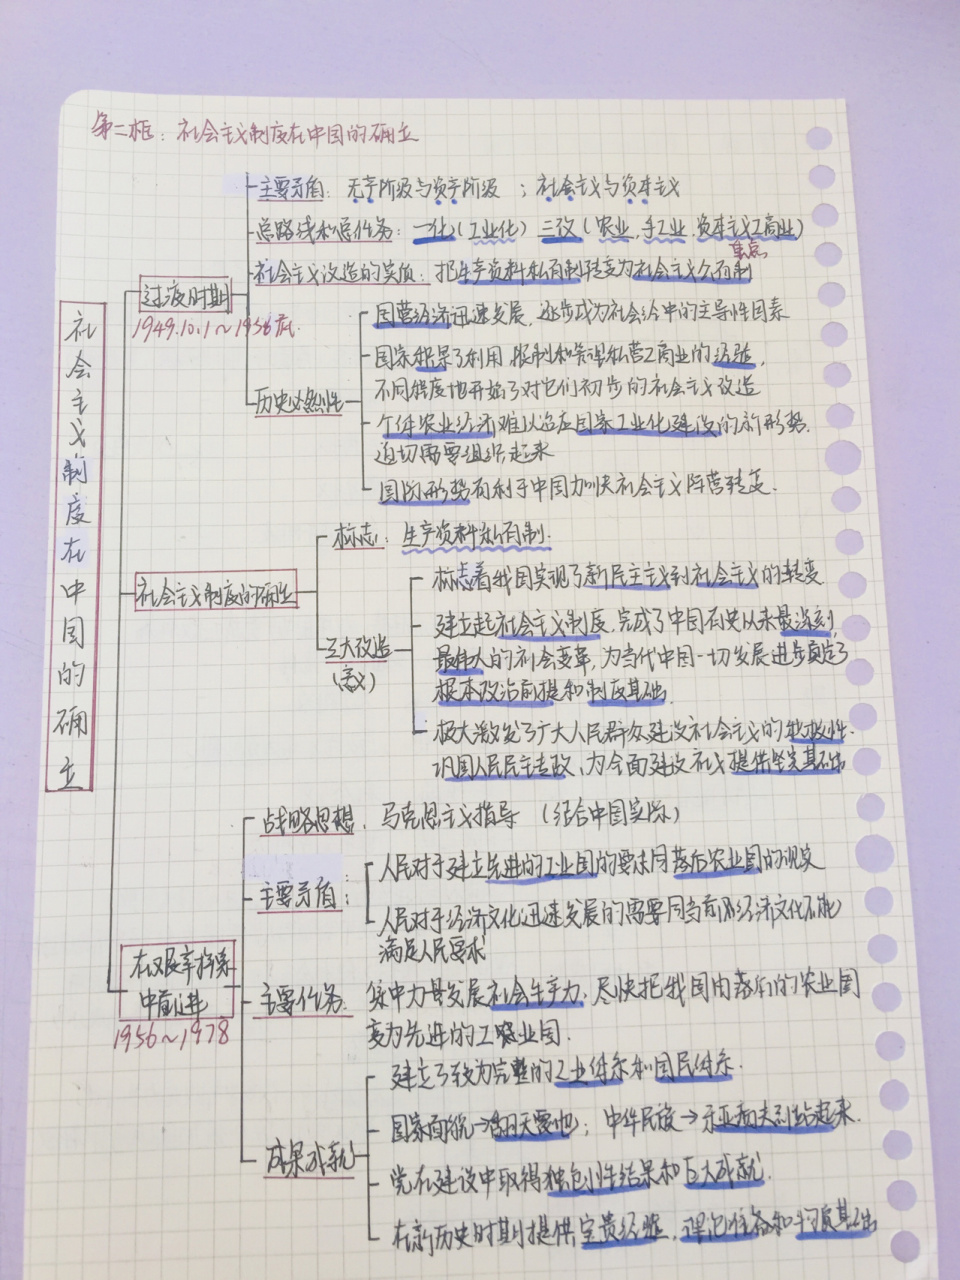 第二框：社会主义制度在中国的确立
社会主义制度在中国的确立
过渡时期
1949.10.1～1956底
主要矛盾：无产阶级与资产阶级；社会主义与资本主义
总路线和总任务：一化(工业化) 三改(农业、手工业、资本主义工商业)
重点
社会主义改造的实质：把生产资料私有制转变为社会主义公有制
历史必然性
国营经济迅速发展，逐步成为社会经中的主导性因素
国家积累了利用、限制和管理私营工商业的经验，
不同程度地开始了对它们初步的社会主义改造
个体农业经济难以适应国家工业化建设的新形势，
迫切需要组织起来
国际形势有利于中国加快社会主义阵营转变.
社会主义制度的确立
标志：生产资料私有制.
三大改造
(意义)
标志着我国实现了新民主主义到社会主义的转变.
建立起社会主义制度，完成了中国历史从未最深刻，
最伟大的社会变革，为当代中国一切发展进步奠定了
根本政治前提和制度基础
极大激发了广大人民群众建设社会主义的积极性.
巩固人民民主专政、为全面建设社义提供坚实基础
在艰辛探索
中前进
1956～1978
战略思想、马克思主义指导（结合中国实际）
主要矛盾：
人民对于建立先进的工业国的要求同落后农业国的现实
人民对于经济文化迅速发展的需要同当前的经济文化不能
满足人民要求
主要任务.
集中力量发展社会生产力，尽快把我国由落后的农业国
变为先进的工业国.
成果成就
建立了较为完整的工业体系和国民体系.
国家面貌→翻天覆地；中华民族→东亚病夫到站起来.
党在建设中取得独创性结果和巨大成就.
在新历史时期提供宝贵经验，理论准备和物质基础